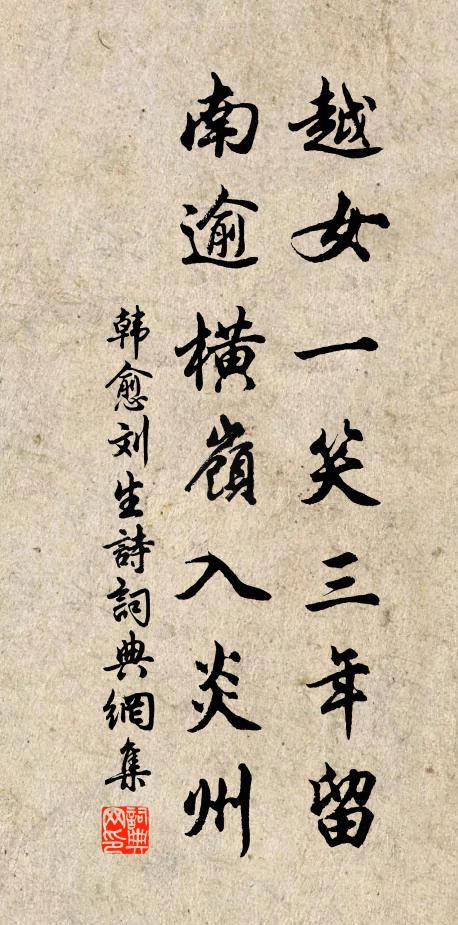 越女一笑三年留
南逾橫嶺入炎州
韩愈刘生詩詞典網集
詞典网印